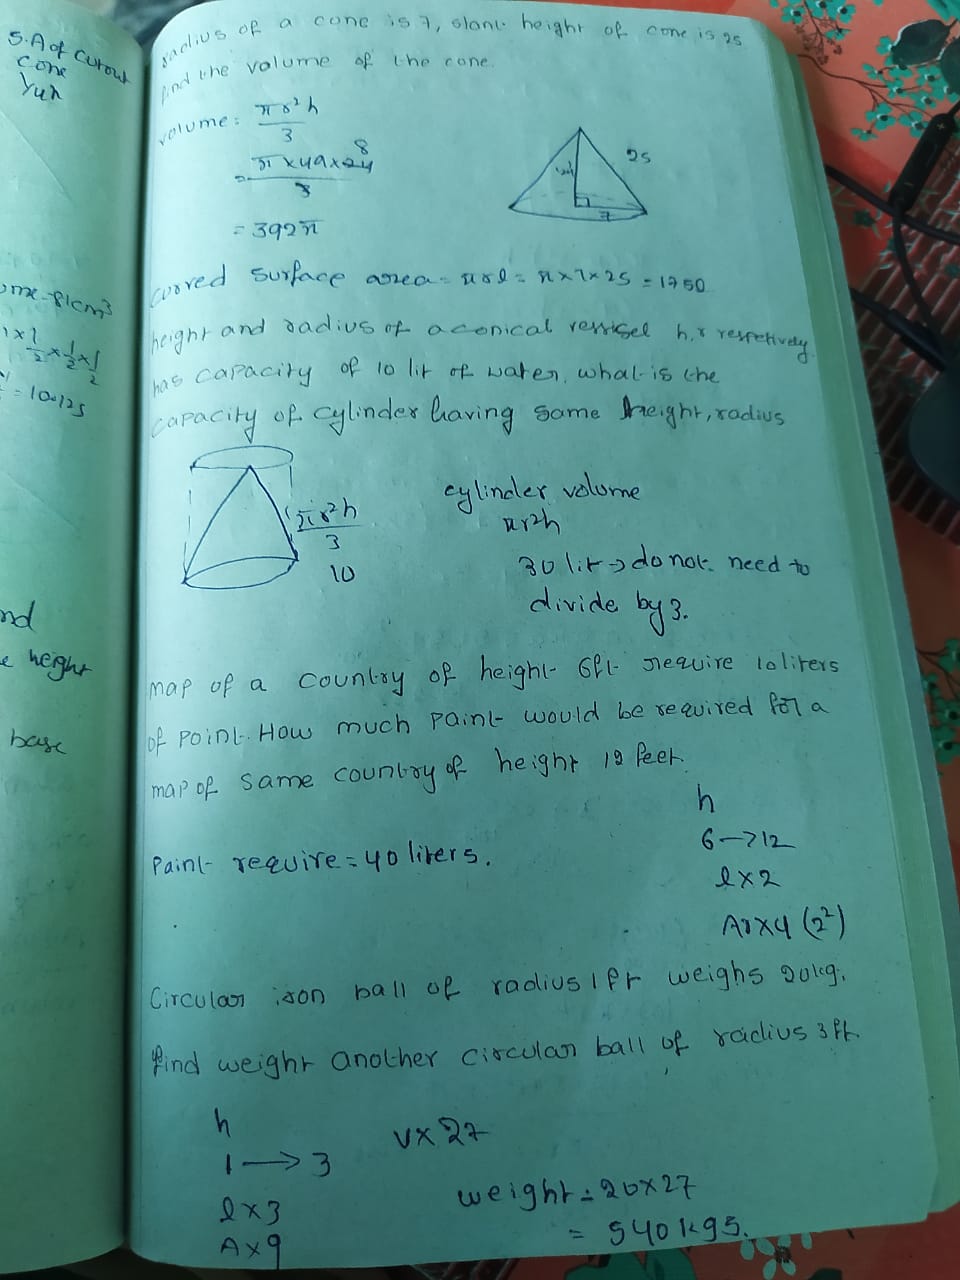 S.A of curout
cone
radius of a cone is 7, slant height of cone is 25
find the volume of the cone.
volume = πr²h
3
= π x 49 x 24 8
3
= 392π
25
24
7
curved surface area = πrl = π x 7 x 25 = 1750
height and radius of a conical vessisel h, r respetively
has capacity of 10 lit of water. what is the
capacity of cylinder having same height, radius
πr²h
3
10
cylinder volume
πr2h
30 lit → do not need to
divide by 3.
map of a country of height 6ft require 10 liters
of point. How much paint would be required for a
map of same country of height 12 feet.
h
6 → 12
l x 2
Ar x 4 (2²)
Paint require = 40 liters.
Circular iron ball of radius 1 ft weighs 20kg.
find weight another circular ball of radius 3 ft
h
1 → 3
l x 3
A x 9
v x 27
weight = 20 x 27
= 540 kgs.
ome = 81cm³
= 10.125
nd
e height
base